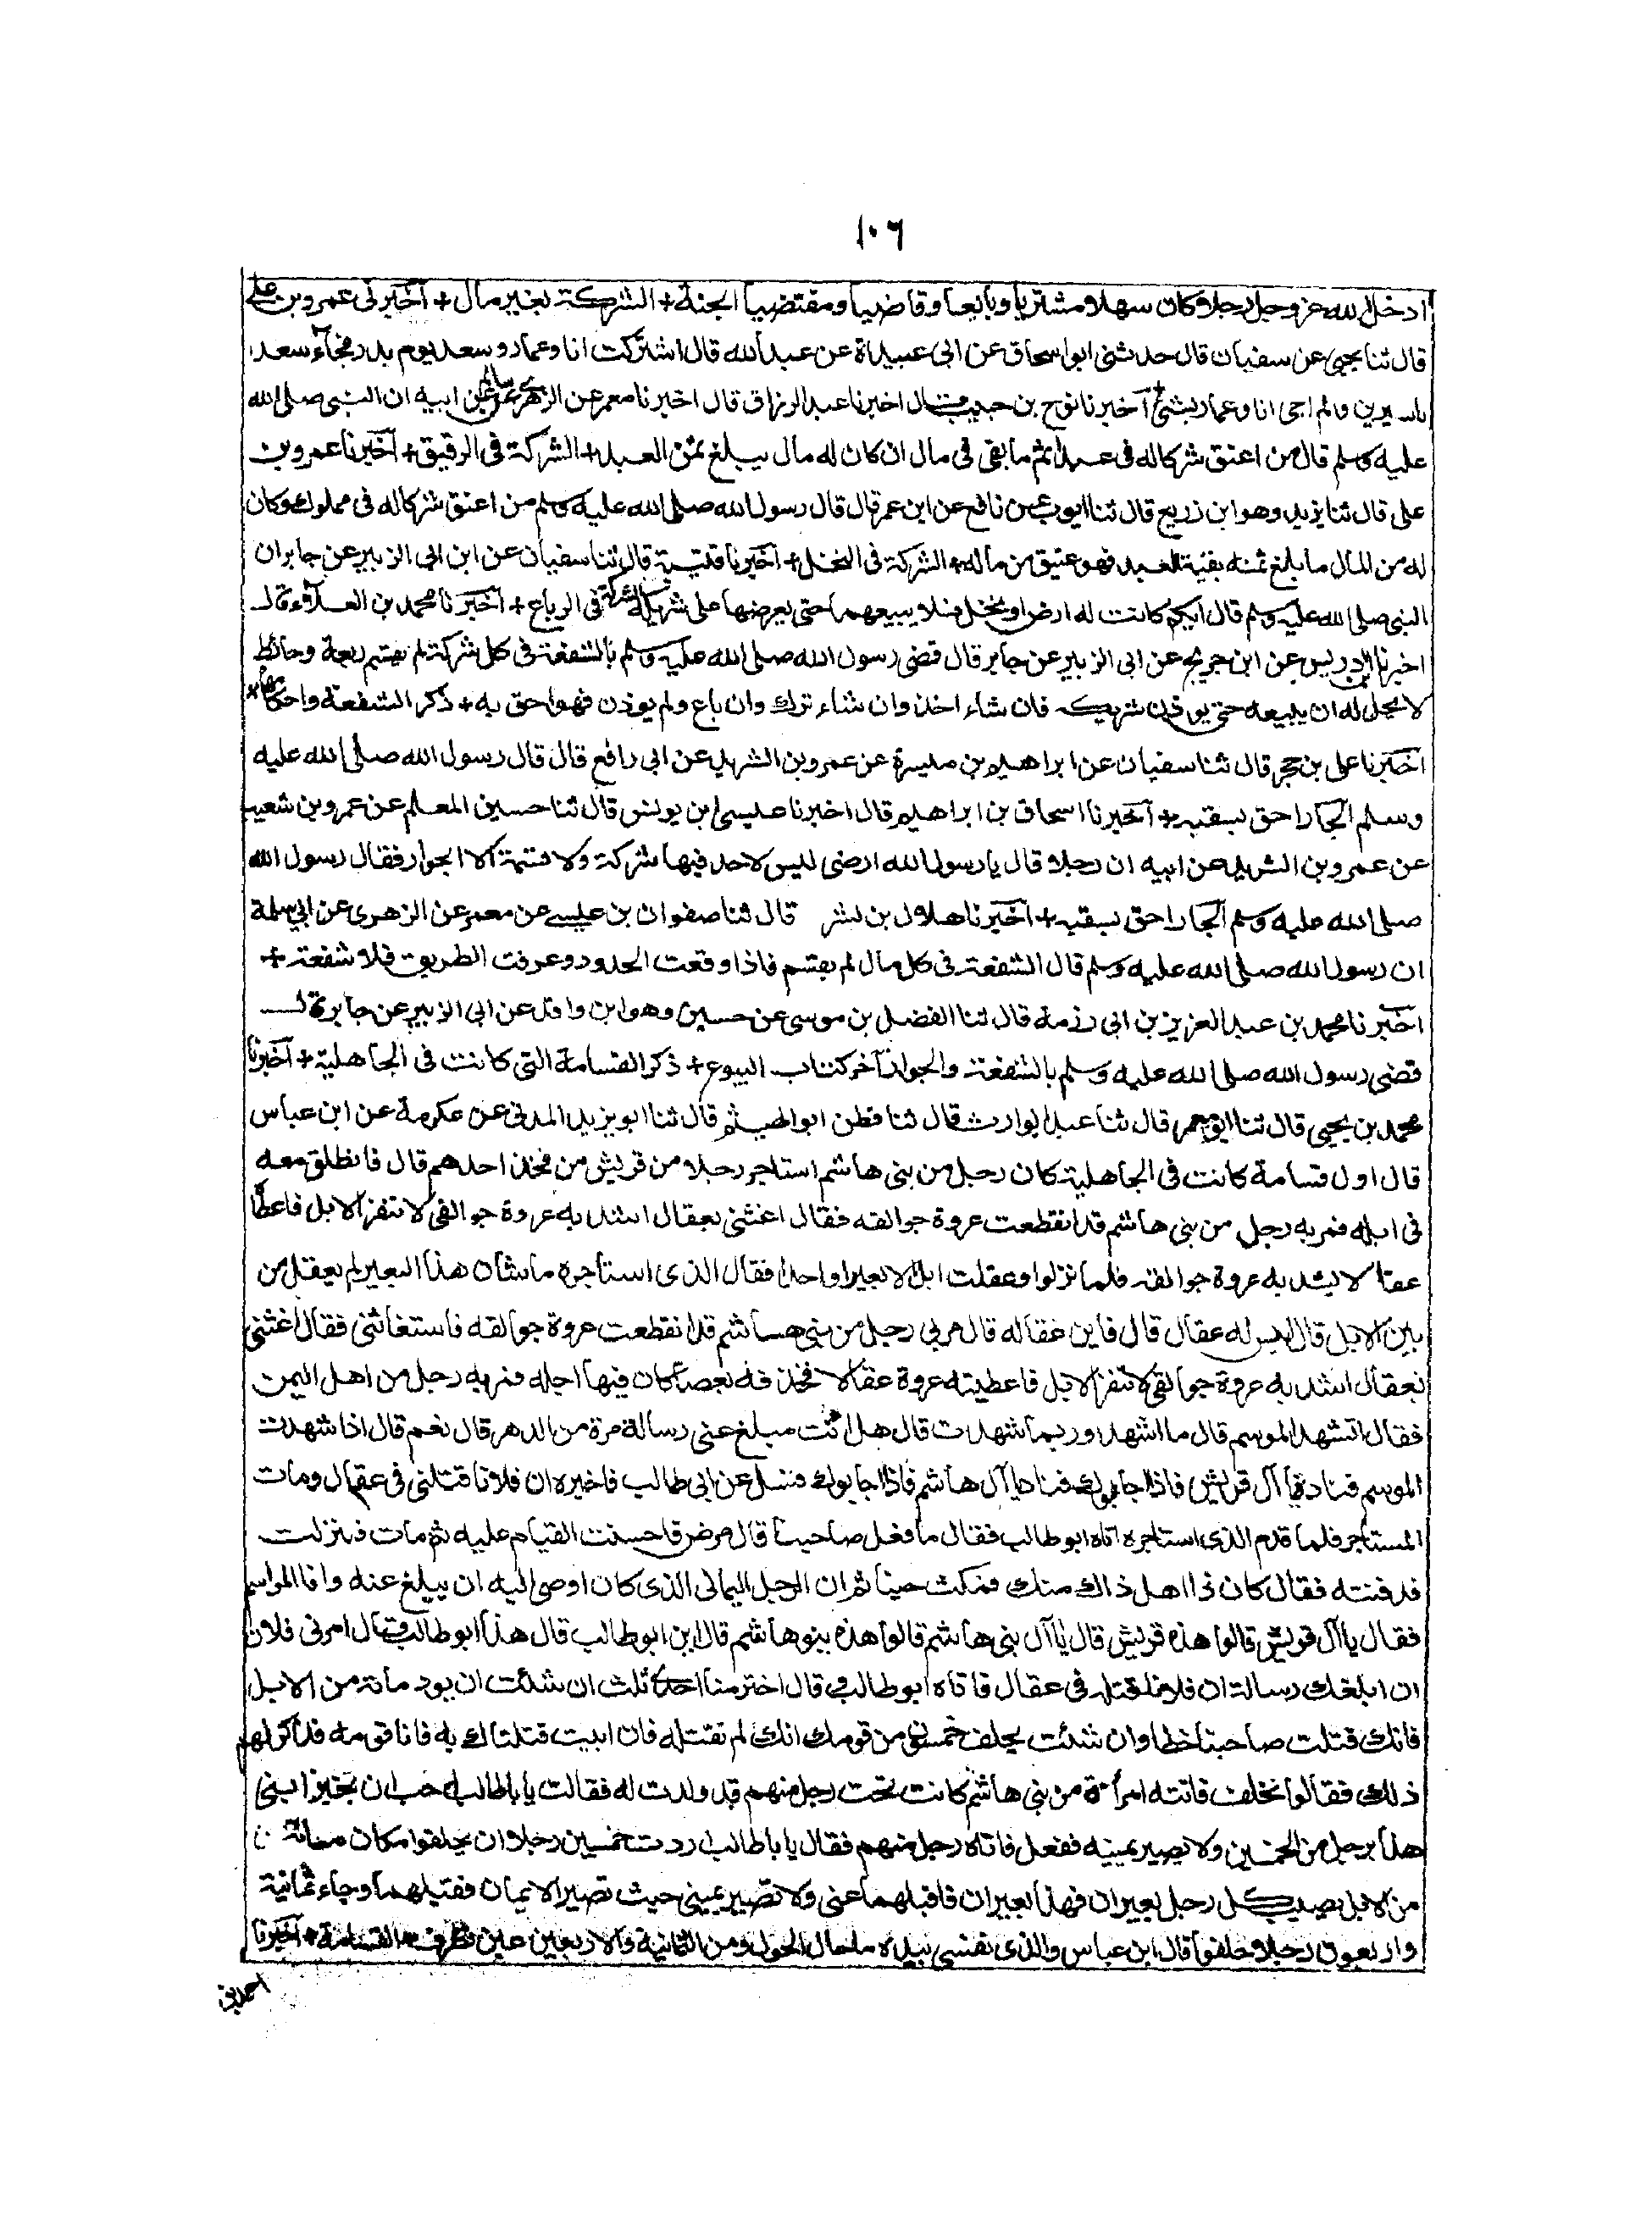 ١٠٦
ادخل الله عز وجل رجلا وكان سهلا ومشتريا وبايعا وقاضيا ومقتضيا الجنة + الشركة بغير مال + اخبرنى عمرو بن على
قال ثنا يحيى عن سفيان قال حدثنى ابو اسحاق عن ابى عبيدة عن عبد الله قال اشتركت انا وعمار وسعد يوم بدر فجاء سعد
باسيرين ولم اجى انا وعمار بشئ + اخبرنا نوح بن حبيب قال اخبرنا عبد الرزاق قال اخبرنا معمر عن الزهرى عن سالم عن ابيه ان النبى صلى الله
عليه وسلم قال من اعتق شركا له فى عبد اتم ما بقى فى مال ان كان له مال يبلغ ثمن العبد + الشركة فى الرقيق + اخبرنا عمرو بن
على قال ثنا يزيد وهو ابن زريع قال ثنا ايوب عن نافع عن ابن عمر قال قال رسول الله صلى الله عليه وسلم من اعتق شركا له فى مملوك وكان
له من المال ما بلغ ثمنه بقية العبد فهو عتيق من ماله + الشركة فى النخل + اخبرنا قتيبة قال ثنا سفيان عن ابن ابى الزبير عن جابر ان
النبى صلى الله عليه وسلم قال ايكم كانت له ارض او نخل فلا يبيعهما حتى يعرضها على شريكه الشركة فى الرباع + اخبرنا محمد بن العلاء قال
اخبرنا ابن ادريس عن ابن جريج عن ابى الزبير عن جابر قال قضى رسول الله صلى الله عليه وسلم بالشفعة فى كل شركة لم يقسم ربعة وحائط
لا يحل له ان يبيعه حتى يوذن شريكه فان شاء اخذ وان شاء ترك وان باع ولم يوذن فهو احق به + ذكر الشفعة واحكامها +
اخبرنا على بن حجر قال ثنا سفيان عن ابراهيم بن ميسرة عن عمرو بن الشريد عن ابى رافع قال قال رسول الله صلى الله عليه
وسلم الجار احق بسقبه + اخبرنا اسحاق بن ابراهيم قال اخبرنا عيسى ابن يونس قال ثنا حسين المعلم عن عمرو بن شعيب
عن عمرو بن الشريد عن ابيه ان رجلا قال يا رسول الله ارضى ليس لاحد فيها شركة ولا قسمة الا الجوار فقال رسول الله
صلى الله عليه وسلم الجار احق بسقبه + اخبرنا هلال بن بشر قال ثنا صفوان بن عيسى عن معمر عن الزهرى عن ابى سلمة
ان رسول الله صلى الله عليه وسلم قال الشفعة فى كل مال لم يقسم فاذا وقعت الحدود وعرفت الطريق فلا شفعة +
اخبرنا محمد بن عبد العزيز بن ابى رزمة قال ثنا الفضل بن موسى عن حسين وهو ابن واقد عن ابى الزبير عن جابر قال
قضى رسول الله صلى الله عليه وسلم بالشفعة والجوار آخر كتاب البيوع + ذكر القسامة التى كانت فى الجاهلية + اخبرنا
محمد بن يحيى قال ثنا ابو معمر قال ثنا عبد الوارث قال ثنا قطن ابو الهيثم قال ثنا ابو يزيد المدنى عن عكرمة عن ابن عباس
قال اول قسامة كانت فى الجاهلية كان رجل من بنى هاشم استاجر رجلا من قريش من فخذ احدهم قال فانطلق معه
فى ابله فمر به رجل من بنى هاشم قد انقطعت عروة جوالقه فقال اغثنى بعقال اشد به عروة جوالقى لا تنفر الابل فاعطاه
عقالا يشد به عروة جوالقه فلما نزلوا وعقلت ابل الا بعيرا واحدا فقال الذى استاجره ما شان هذا البعير لم يعقل من
بين الابل قال ليس له عقال قال فاين عقاله قال مر بى رجل من بنى هاشم قد انقطعت عروة جوالقه فاستغاثنى فقال اغثنى
بعقال اشد به عروة جوالقى لا تنفر الابل فاعطيته عروة عقالا فحذفه بعصا كان فيها اجله فمر به رجل من اهل اليمن
فقال اتشهد الموسم قال ما اشهد وربما شهدت قال هل انت مبلغ عنى رسالة مرة من الدهر قال نعم قال اذا شهدت
الموسم فناد يا آل قريش فاذا اجابوك فناد يا آل هاشم فاذا اجابوك فسل عن ابى طالب فاخبره ان فلانا قتلنى فى عقال ومات
المستاجر فلما قدم الذى استاجره اتاه ابو طالب فقال ما فعل صاحبنا قال مرض فاحسنت القيام عليه ثم مات فنزلت
فدفنته فقال كان ذا اهل ذاك منك فمكث حينا ثم ان الرجل اليمانى الذى كان اوصى اليه ان يبلغ عنه وافا المواسم
فقال يا آل قريش قالوا هذه قريش قال يا آل بنى هاشم قالوا هذه بنو هاشم قال اين ابو طالب قال هذا ابو طالب فقال امرنى فلان
ان ابلغك رسالة ان فلانا قتله فى عقال فاتاه ابو طالب فقال اختر منا احدى ثلث ان شئت ان يود مائة من الابل
فانك قتلت صاحبنا خطا وان شئت يحلف خمسون من قومك انك لم تقتله فان ابيت قتلناك به فاتا قومه فذكر لهم
ذلك فقالوا نحلف فاتته امرأة من بنى هاشم كانت تحت رجل منهم قد ولدت له فقالت يا باطالب احب ان تجيز ابنى
هذا برجل من الخمسين ولا تصير يمينه ففعل فاتاه رجل منهم فقال يا باطالب اردت خمسين رجلا ان يحلفوا مكان مائة
من الابل يصيب كل رجل بعيران فهذا بعيران فاقبلهما عنى ولا تصير يمينى حيث تصير الايمان فقبلهما وجاء ثمانية
واربعون رجلا حلفوا قال ابن عباس والذى نفسى بيده ما حال الحول ومن الثمانية والاربعين عين تطرف + القسامة + اخبرنا
احمد بن